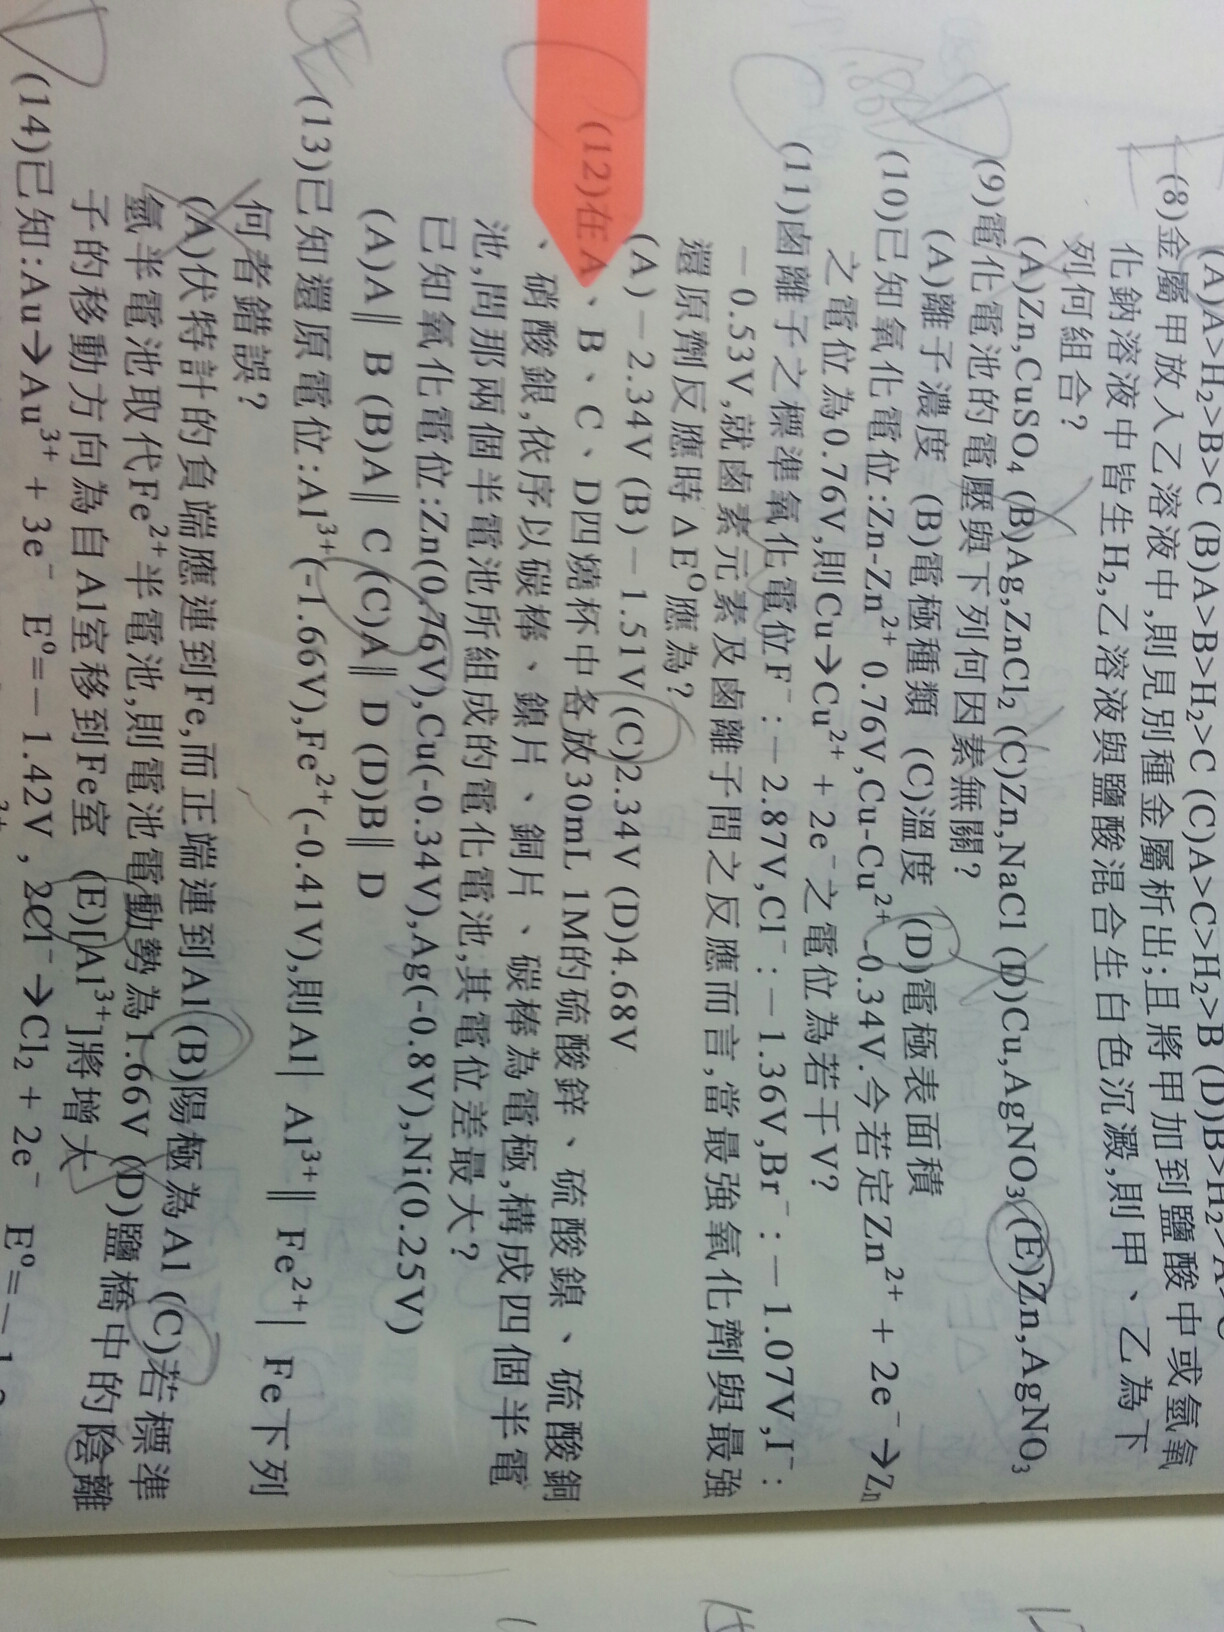 (A)A>H₂>B>C (B)A>B>H₂>C (C)A>C>H₂>B (D)B>H₂>A>C
(8)金屬甲放入乙溶液中,則見別種金屬析出;且將甲加到鹽酸中或氫氧
化鈉溶液中皆生H₂,乙溶液與鹽酸混合生白色沉澱,則甲、乙為下
列何組合?
(A)Zn,CuSO₄ (B)Ag,ZnCl₂ (C)Zn,NaCl (D)Cu,AgNO₃ (E)Zn,AgNO₃
(9)電化電池的電壓與下列何因素無關?
(A)離子濃度 (B)電極種類 (C)溫度 (D)電極表面積
(10)已知氧化電位:Zn-Zn²⁺ 0.76V,Cu-Cu²⁺-0.34V.今若定Zn²⁺ + 2e⁻→Zn
之電位為0.76V,則Cu→Cu²⁺ + 2e⁻之電位為若干V?
(11)鹵離子之標準氧化電位F⁻:-2.87V,Cl⁻:-1.36V,Br⁻:-1.07V,I⁻:
-0.53V,就鹵素元素及鹵離子間之反應而言,當最強氧化劑與最強
還原劑反應時ΔE⁰應為?
(A)-2.34V (B)-1.51V (C)2.34V (D)4.68V
(12)在A、B、C、D四燒杯中各放30mL 1M的硫酸鋅、硫酸鎳、硫酸銅
、硝酸銀,依序以碳棒、鎳片、銅片、碳棒為電極,構成四個半電
池,問那兩個半電池所組成的電化電池,其電位差最大?
已知氧化電位:Zn(0.76V),Cu(-0.34V),Ag(-0.8V),Ni(0.25V)
(A)A‖B (B)A‖C (C)A‖D (D)B‖D
(13)已知還原電位:Al³⁺(-1.66V),Fe²⁺(-0.41V),則Al| Al³⁺‖ Fe²⁺| Fe下列
何者錯誤?
(A)伏特計的負端應連到Fe,而正端連到Al (B)陽極為Al (C)若標準
氫半電池取代Fe²⁺半電池,則電池電動勢為1.66V (D)鹽橋中的陰離
子的移動方向為自Al室移到Fe室 (E)[Al³⁺]將增大
(14)已知:Au→Au³⁺ + 3e⁻ E⁰=-1.42V , 2Cl⁻→Cl₂ + 2e⁻ E⁰=-1.3